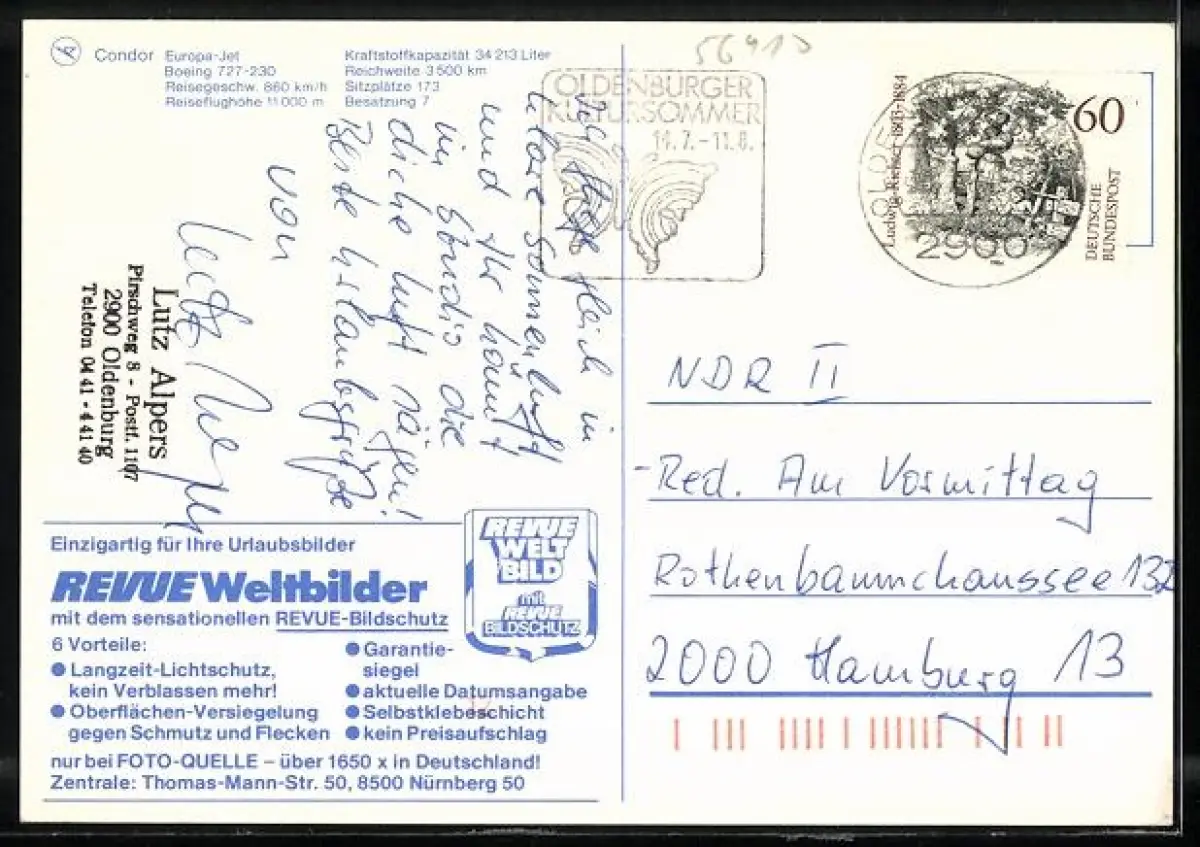 Condor Europa-Jet
Boeing 727-230
Reisegeschw. 860 km/h
Reiseflughöhe 11 000 m
Kraftstoffkapazität 34 213 Liter
Reichweite 3 500 km
Sitzplätze 173
Besatzung 7
5691
OLDENBURGER
KULTURSOMMER
14. 7. - 11. 8.
OLDE
2900
Ludwig Richter 1803-1884
60
DEUTSCHE
BUNDESPOST
gleich in
klare Sonnenluft
und Ihr könnt
im Studio die
dicke Luft sägen!
Beste Urlaubsgrüße
von
Lutz Alpers
Lutz Alpers
Pirschweg 8 - Postf. 1107
2900 Oldenburg
Telefon 04 41 - 4 41 40
NDR II
-Red. Am Vormittag
Rothenbaumchaussee 132
2000 Hamburg 13
Einzigartig für Ihre Urlaubsbilder
REVUE Weltbilder
mit dem sensationellen REVUE-Bildschutz
6 Vorteile:
● Langzeit-Lichtschutz,
kein Verblassen mehr!
● Oberflächen-Versiegelung
gegen Schmutz und Flecken
● Garantie-
siegel
● aktuelle Datumsangabe
● Selbstklebeschicht
● kein Preisaufschlag
nur bei FOTO-QUELLE – über 1650 x in Deutschland!
Zentrale: Thomas-Mann-Str. 50, 8500 Nürnberg 50
REVUE
WELT
BILD
mit
REVUE
BILDSCHUTZ